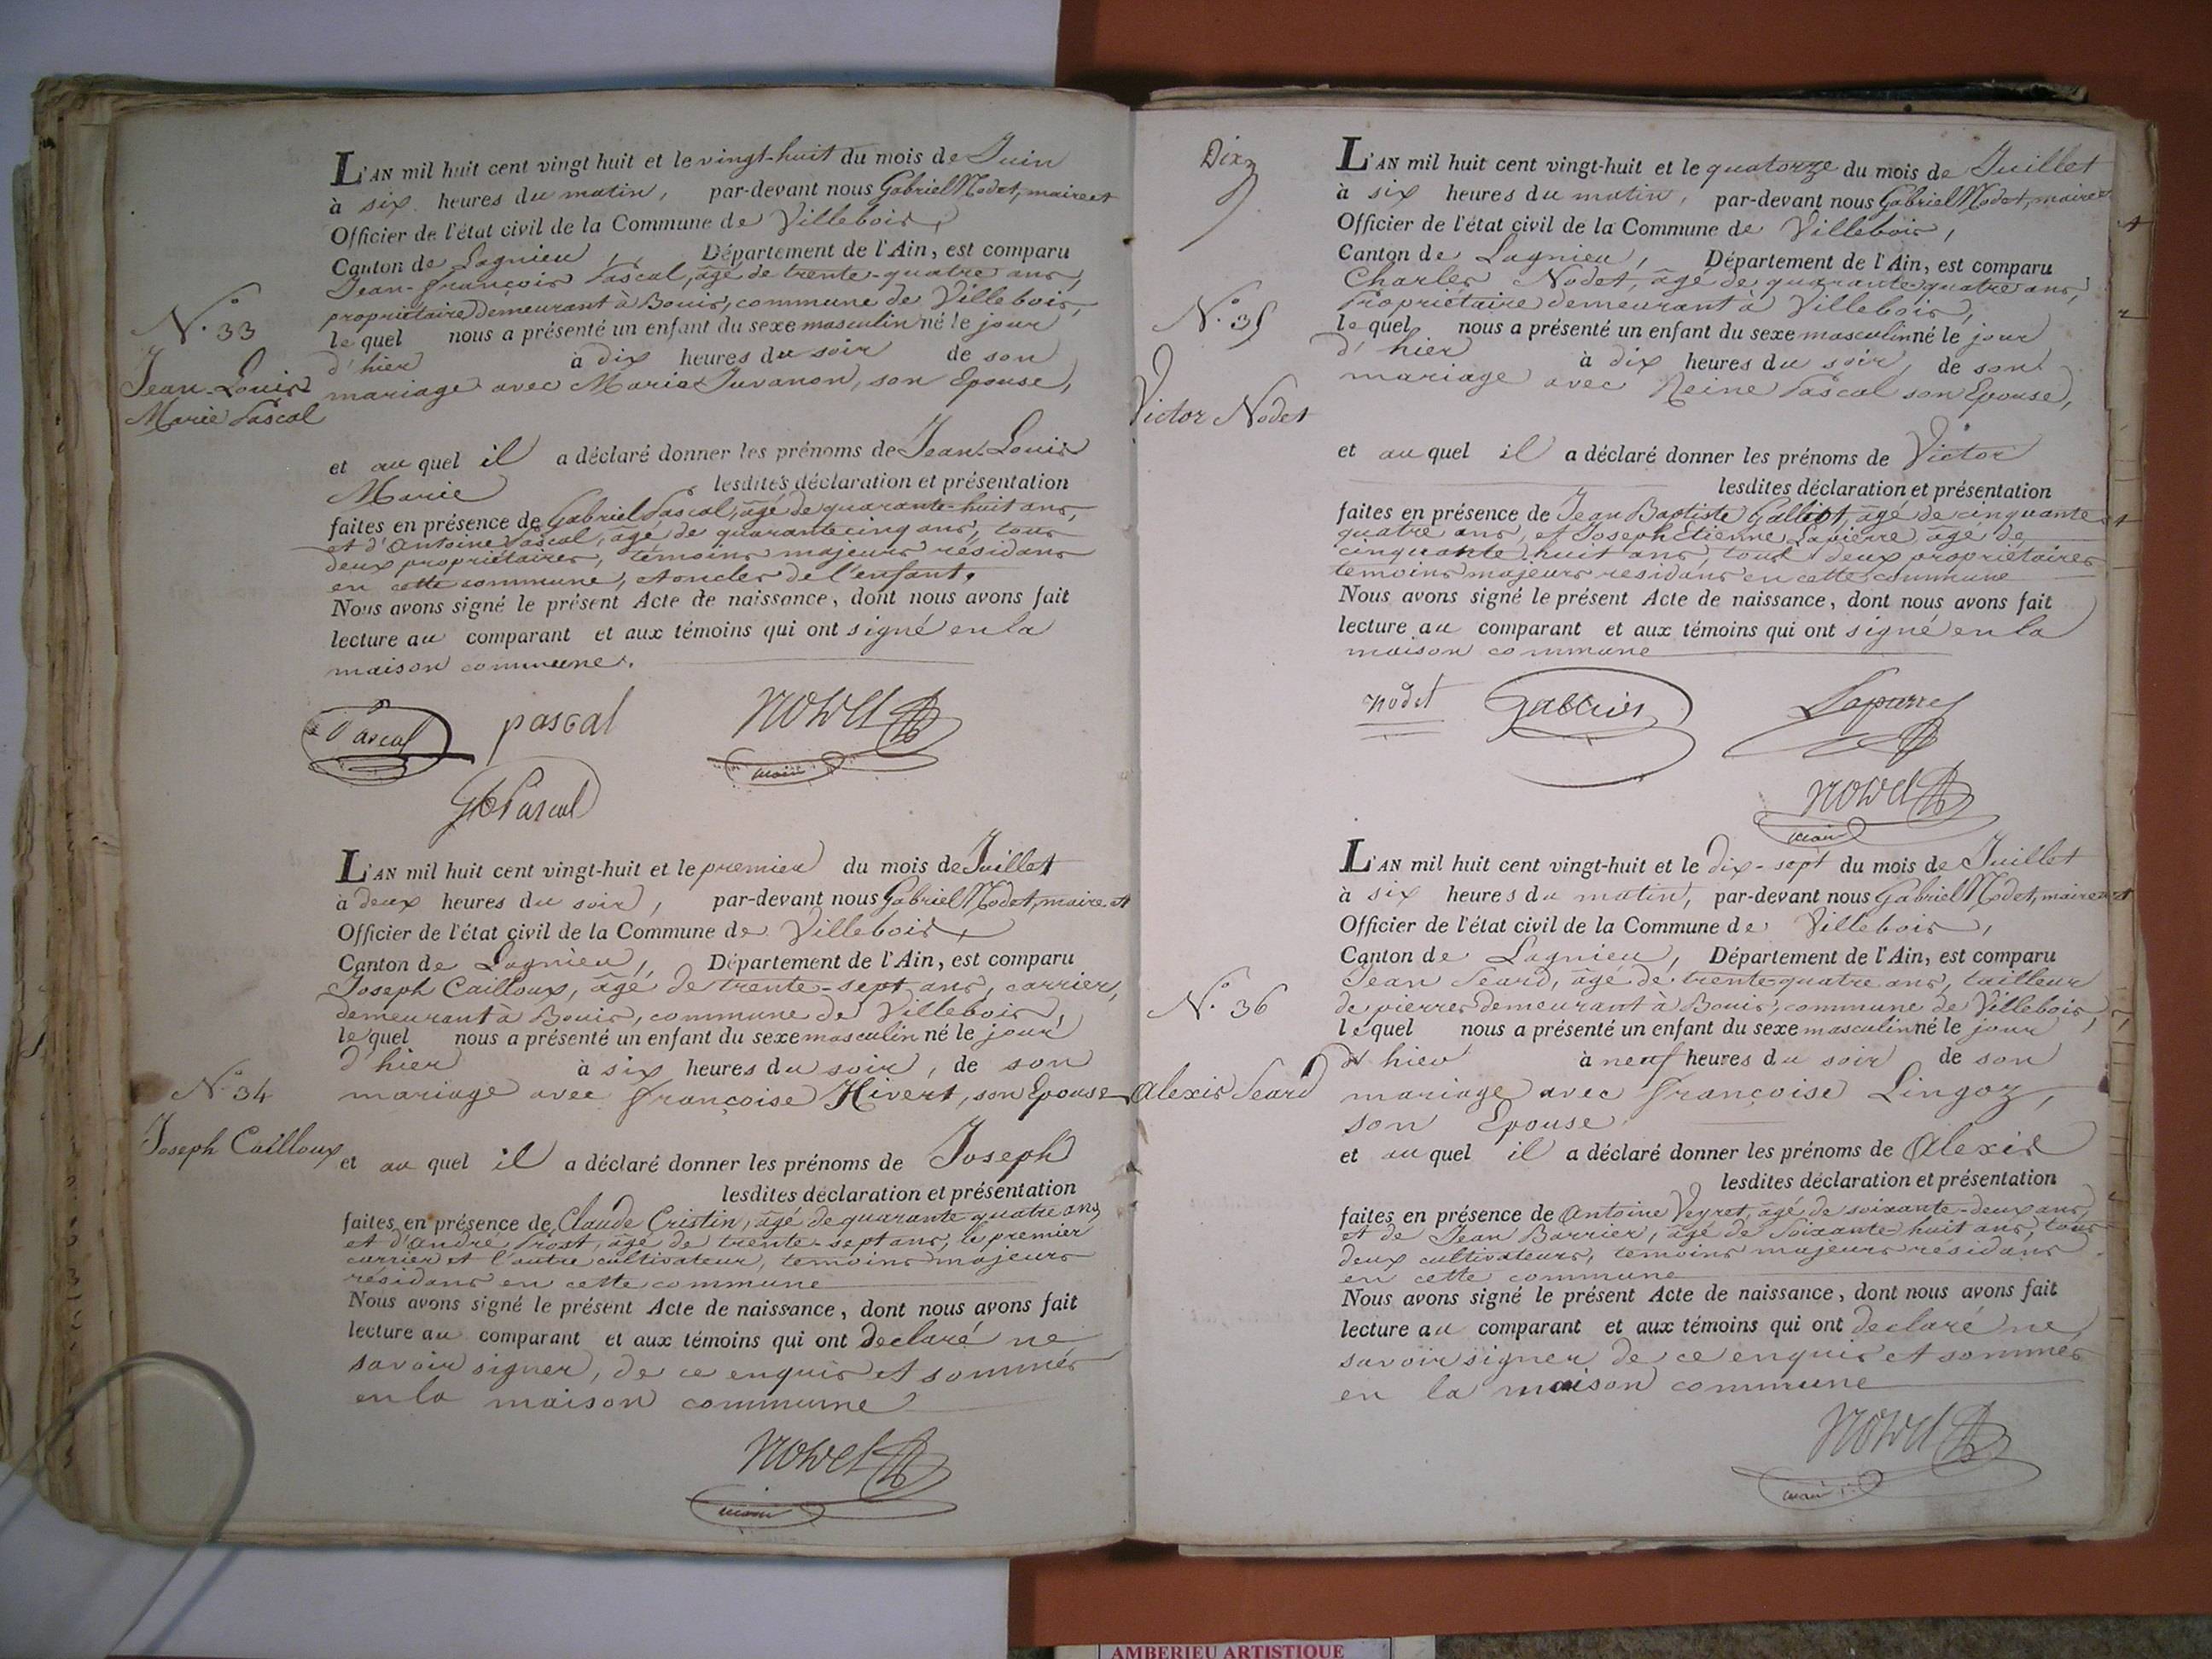 L'AN mil huit cent vingt huit et le vingt-huit du mois de Juin
à six heures du matin, par-devant nous Gabriel Nodet, maire et
Officier de l'état civil de la Commune de Villebois,
Canton de Lagnieu, Département de l'Ain, est comparu
Jean-François Pascal, âgé de trente-quatre ans,
propriétaire demeurant à Bouis, commune de Villebois,
le quel nous a présenté un enfant du sexe masculin né le jour
d'hier à dix heures du soir de son
mariage avec Marie Juvanon, son Epouse,
N.o 33
Jean-Louis
Marie Pascal
et au quel il a déclaré donner les prénoms de Jean-Louis
Marie lesdites déclaration et présentation
faites en présence de Gabriel Pascal, âgé de quarante-huit ans,
et d'Antoine Pascal, âgé de quarante cinq ans, tous
deux propriétaires, témoins majeurs résidans
en cette commune, et oncles de l'enfant.
Nous avons signé le présent Acte de naissance, dont nous avons fait
lecture au comparant et aux témoins qui ont signé en la
maison commune.
Pascal pascal Nodet
maire
Gb Pascal
L'AN mil huit cent vingt-huit et le premier du mois de Juillet
à deux heures du soir, par-devant nous Gabriel Nodet, maire et
Officier de l'état civil de la Commune de Villebois,
Canton de Lagnieu, Département de l'Ain, est comparu
Joseph Cailloux, âgé de trente-sept ans, carrier,
demeurant à Bouis, commune de Villebois,
le quel nous a présenté un enfant du sexe masculin né le jour
d'hier à six heures du soir, de son
mariage avec Françoise Hivert, son Epouse
N.o 34
Joseph Cailloux
et au quel il a déclaré donner les prénoms de Joseph
lesdites déclaration et présentation
faites en présence de Claude Cristin, âgé de quarante quatre ans,
et d'André Prost, âgé de trente-sept ans, le premier
carrier et l'autre cultivateur, témoins majeurs
résidans en cette commune
Nous avons signé le présent Acte de naissance, dont nous avons fait
lecture au comparant et aux témoins qui ont declaré ne
savoir signer, de ce enquis et sommés
en la maison commune
Nodet
maire
Dix
L'AN mil huit cent vingt-huit et le quatorze du mois de Juillet
à six heures du matin, par-devant nous Gabriel Nodet, maire et
Officier de l'état civil de la Commune de Villebois,
Canton de Lagnieu, Département de l'Ain, est comparu
Charles Nodet, âgé de quarante-quatre ans,
Propriétaire demeurant à Villebois,
le quel nous a présenté un enfant du sexe masculin né le jour
d'hier à dix heures du soir, de son
mariage avec Reine Pascal son Epouse,
N.o 35
Victor Nodet
et au quel il a déclaré donner les prénoms de Victor
lesdites déclaration et présentation
faites en présence de Jean Baptiste âgé de cinquante
quatre ans, et Joseph Etienne Lapierre âgé de
cinquante huit ans, tous deux propriétaires
témoins majeurs residans en cette commune
Nous avons signé le présent Acte de naissance, dont nous avons fait
lecture au comparant et aux témoins qui ont signé en la
maison commune
nodet Lapierre
Nodet
maire
L'AN mil huit cent vingt-huit et le dix-sept du mois de Juillet
à six heures du matin, par-devant nous Gabriel Nodet, maire et
Officier de l'état civil de la Commune de Villebois,
Canton de Lagnieu, Département de l'Ain, est comparu
Jean Seard, âgé de trente quatre ans, tailleur
de pierres demeurant à Bouis, commune de Villebois,
lequel nous a présenté un enfant du sexe masculin né le jour
d'hier à neuf heures du soir de son
mariage avec Françoise Lingoz,
son Epouse
N.o 36
Alexis Seard
et au quel il a déclaré donner les prénoms de Alexis
lesdites déclaration et présentation
faites en présence de Antoine Veyret, âgé de soixante-deux ans,
et de Jean Barrier, âgé de Soixante huit ans, tous
deux cultivateurs, témoins majeurs résidans
en cette commune
Nous avons signé le présent Acte de naissance, dont nous avons fait
lecture au comparant et aux témoins qui ont declaré ne
savoir signer de ce enquis et sommés
en la maison commune
Nodet
maire
AMBERIEU ARTISTIQUE